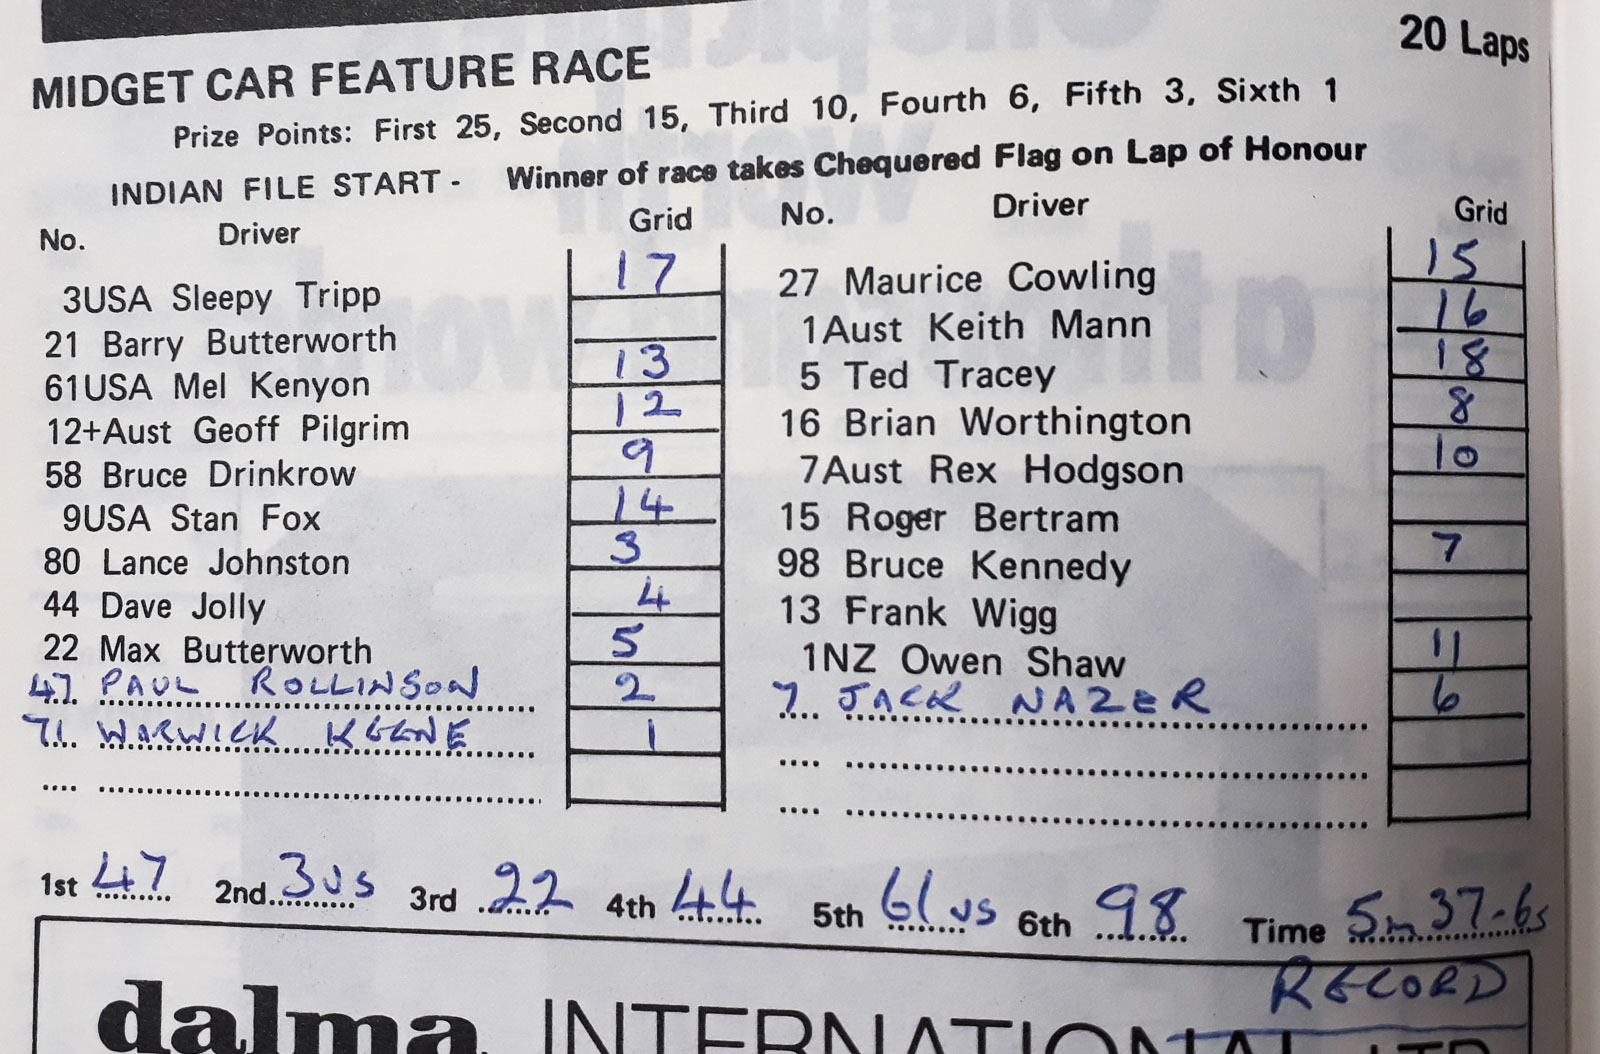 20 Laps
MIDGET CAR FEATURE RACE
Prize Points: First 25, Second 15, Third 10, Fourth 6, Fifth 3, Sixth 1
INDIAN FILE START - Winner of race takes Chequered Flag on Lap of Honour
No. Driver Grid
3USA Sleepy Tripp 17
21 Barry Butterworth
61USA Mel Kenyon 13
12+Aust Geoff Pilgrim 12
58 Bruce Drinkrow 9
9USA Stan Fox 14
80 Lance Johnston 3
44 Dave Jolly 4
22 Max Butterworth 5
47 PAUL ROLLINSON 2
71 WARWICK KEENE 1
No. Driver Grid
27 Maurice Cowling 15
1Aust Keith Mann 16
5 Ted Tracey 18
16 Brian Worthington 8
7Aust Rex Hodgson 10
15 Roger Bertram
98 Bruce Kennedy 7
13 Frank Wigg
1NZ Owen Shaw 11
7 JACK NAZER 6
1st 47 2nd 3us 3rd 22 4th 44 5th 61us 6th 98 Time 5m 37-6s
RECORD
dalma INTERNATIONAL LTD